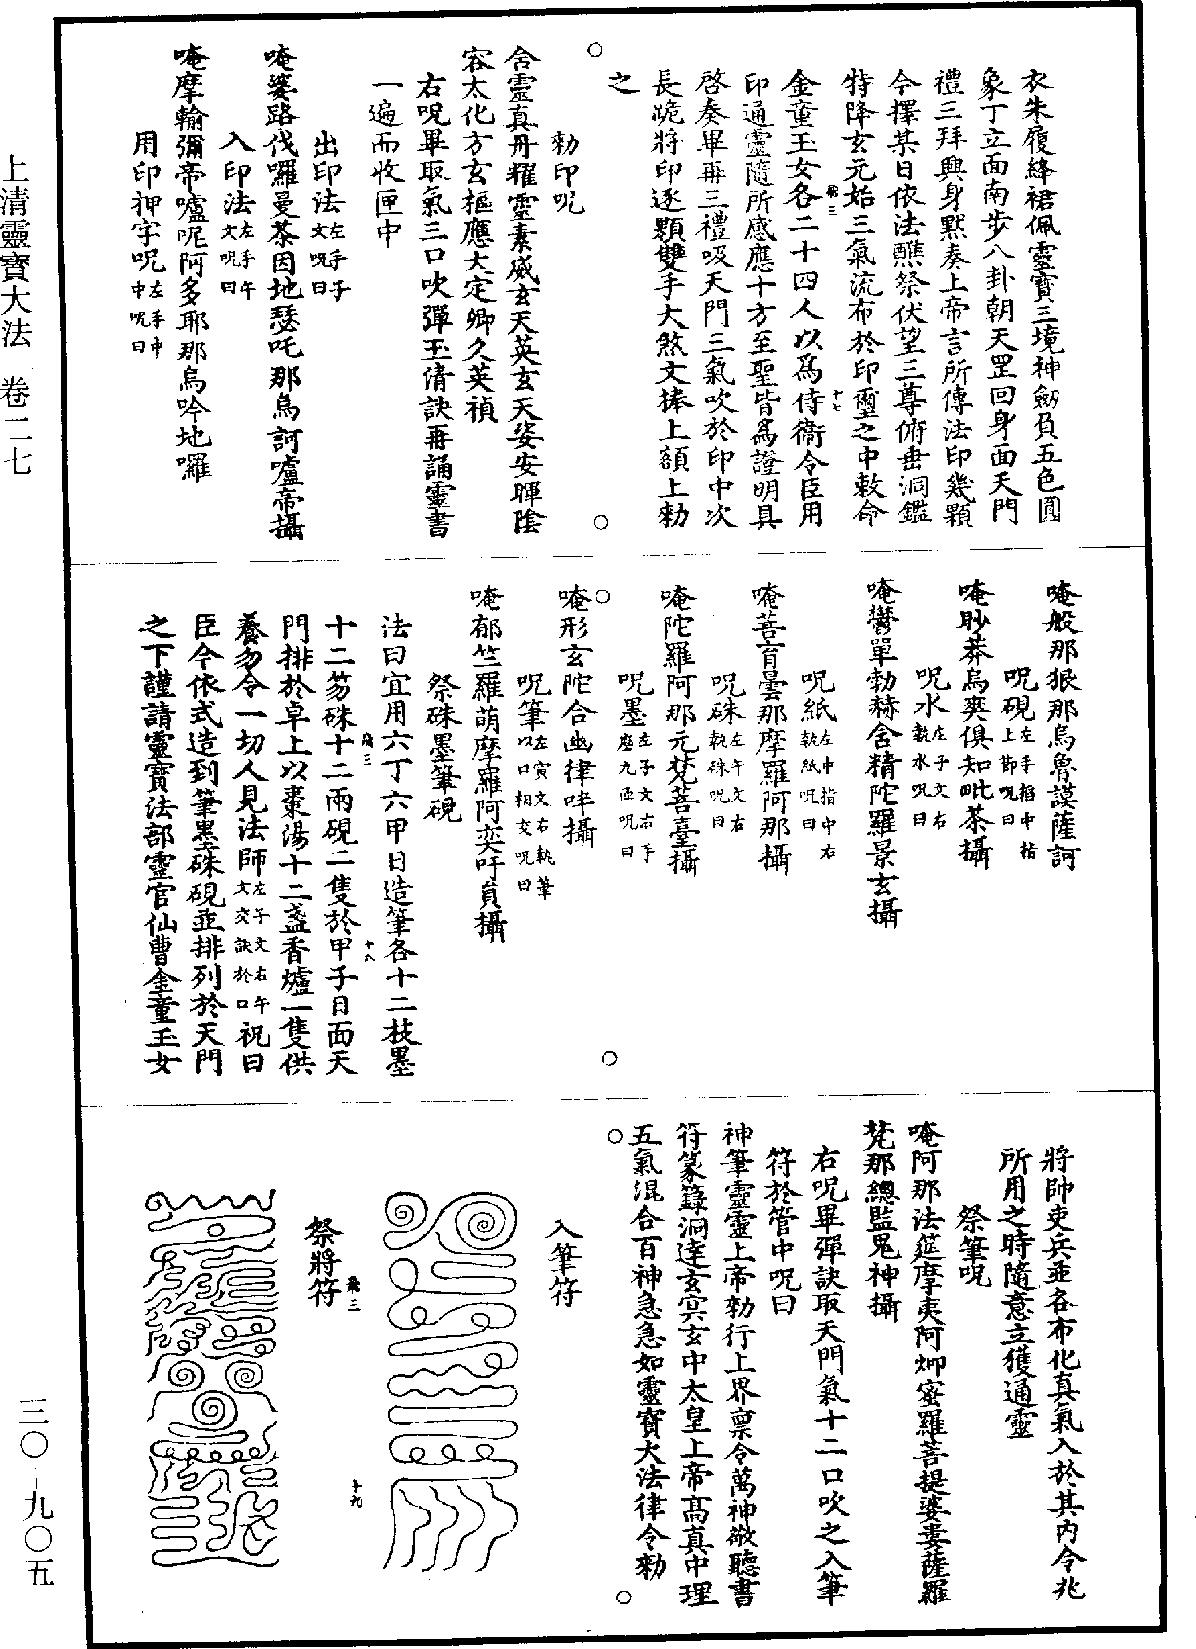 衣朱履絳裙佩靈寶三境神劒負五色圓
象丁立面南步八卦朝天罡回身面天門
禮三拜興身黙奏上帝言所傳法印幾顆
今擇某日依法醮祭伏望三尊俯垂洞鑑
特降玄元始三氣流布於印璽之中敕命
金童玉女各二十四人以爲侍衞令臣用
印通靈隨所感應十方至聖皆爲證明具
啓奏畢再三禮吸天門三氣吹於印中次
長跪將印逐顆雙手大煞文捧上額上勑
之
勑印呪
含靈真丹耀靈素威玄天英玄天姿安暉陰
容太化方玄樞應大定卿久英禎
右呪畢取氣三口吹彈玉清訣再誦靈書
一遍而收匣中
出印法左手子文呪曰
唵婆路伐囉曼茶因地瑟吒那烏訶嚧帝攝
入印法左手午文呪曰
唵摩輪彌帝嚧呢阿多耶那烏吟地囉
用印狎字呪左手中中呪曰
唵般那狠那烏魯謨薩訶
呪硯左手掐中指上節呪曰
唵眇莽烏奕俱知毗茶攝
呪水左子文右執水呪曰
唵鬱單勃赫含精陀羅景玄攝
呪紙左中指中右執紙呪曰
唵菩育曇那摩羅阿那攝
呪硃左午文右執硃呪曰
唵陀羅阿那元梵菩臺攝
呪墨左子文右手
唵形玄陀合幽律咩攝
呪筆左寅文右執筆以口相交呪曰
唵郁竺羅萌摩羅阿奕吁員攝
祭硃墨筆硯
法曰宜用六丁六甲日造筆各十二枝墨
十二笏硃十二兩硯二隻於甲子日面天
門排於卓上以棗湯十二盞香爐一隻供
養勿令一切人見法師左子文右午文交訣於口祝曰
臣今依式造到筆墨硃硯並排列於天門
之下謹請靈寶法部靈官仙曹金童玉女
將帥吏兵並各布化真氣入於其內令兆
所用之時隨意立獲通靈
祭筆呪
唵阿那法筵摩夷阿𡖖蜜羅菩提婆婁薩羅
梵那總監鬼神攝
右呪畢彈訣取天門氣十二口吹之入筆
符於管中呪曰
神筆靈靈上帝勑行上界禀令萬神敬聽書
符篆籙洞達玄冥玄中太皇上帝高真中理
五氣混合百神急急如靈寶大法律令勑
入筆符
祭將符
十七
十八
十九
上清靈寶大法 卷二七
三〇-九〇五